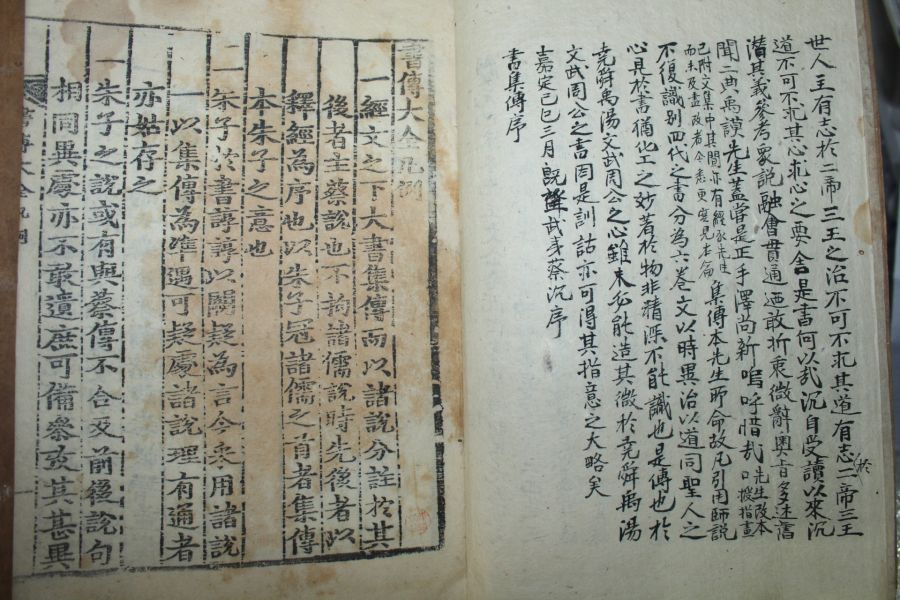 世人王有志於二帝三王之治不可不求其道有志於二帝三王
道不可不求其心求心之要舍是書何以哉沉自受讀以來沉
潛其義參考衆說融會貫通迺敢折衷微辭奧旨多述舊
聞二典禹謨先生蓋嘗是正手澤尚新嗚呼惜哉先生改本口授指畫
已附文集中其間亦有經承先生而未及盡改者今悉更定見本篇集傳本先生所命故凡引用師說
不復識別四代之書分為六卷文以時異治以道同聖人之
心見於書猶化工之妙著於物非精深不能識也是傳也於
堯舜禹湯文武周公之心雖未必能造其微於堯舜禹湯
文武周公之書因是訓詁亦可得其指意之大略矣
嘉定己巳三月既望武夷蔡沉序
書集傳序
書傳大全凡例
一經文之下大書集傳而以諸說分註於其
後者主蔡說也不拘諸儒說時先後者以
釋經為序也以朱子冠諸儒之首者集傳
本朱子之意也
一朱子於書諄諄以闕疑為言今采用諸說
一以集傳為準遇可疑處諸說理有通者
亦姑存之
一朱子之說或有與蔡傳不合及前後說句
相同異處亦不敢遺庶可備參考其甚異